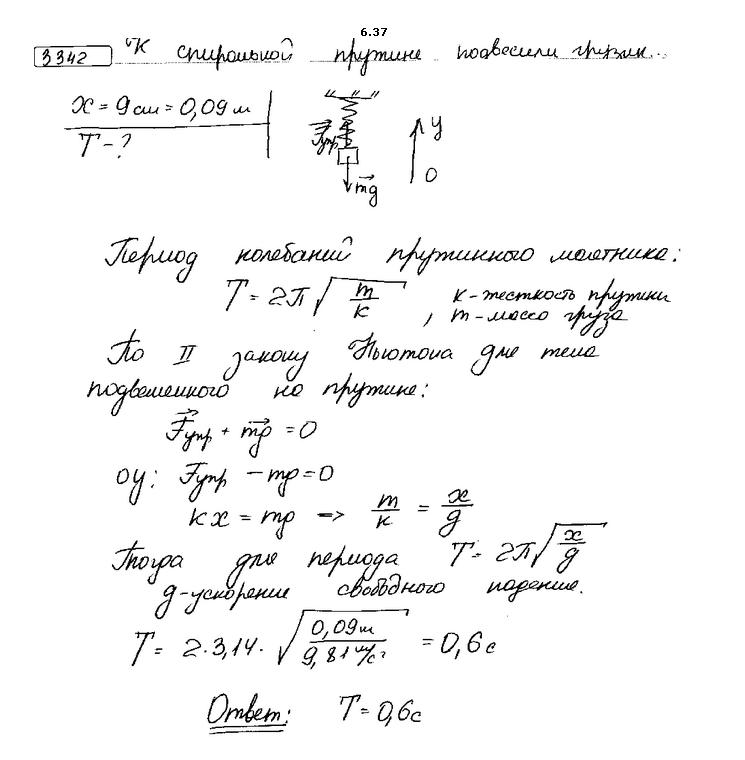 6.37
3342 "К спиральной пружине подвесили грузик...
x = 9 см = 0,09 м
T - ?
Fупр
y
mg
0
Период колебаний пружинного маятника:
T = 2π√(m/k) , k - жесткость пружины
m - масса груза
По II закону Ньютона для тела
подвешенного на пружине:
Fупр + mg = 0
oy: Fупр - mg = 0
kx = mg => m/k = x/g
Тогда для периода T = 2π√(x/g)
g - ускорение свободного падения.
T = 2·3,14·√(0,09 м / 9,81 м/с²) = 0,6 с
Ответ: T = 0,6 с